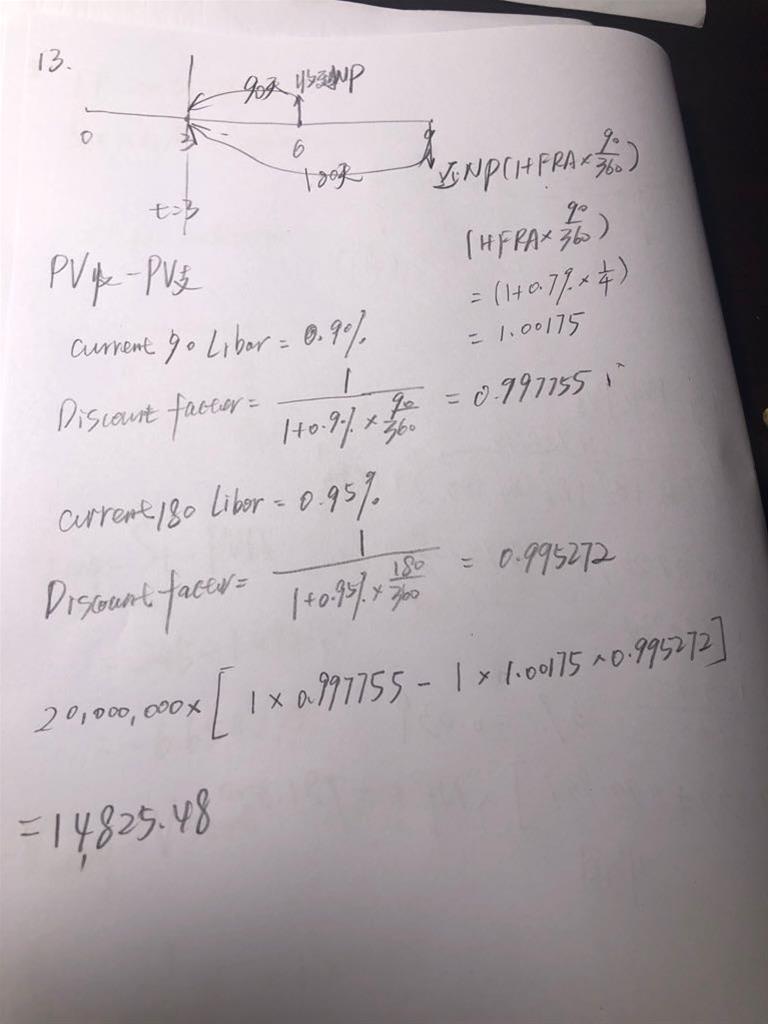 13.
90天 收到NP
0 3 6 9
180天 还NP(1+FRA×90/360)
t=3
(1+FRA×90/360)
PV收-PV支
=(1+0.7%×1/4)
=1.00175
current 90 Libor = 0.90%
Discount factor = 1/(1+0.9%×90/360) = 0.997755
current 180 Libor = 0.95%
Discount factor = 1/(1+0.95%×180/360) = 0.995272
20,000,000×[1×0.997755-1×1.00175×0.995272]
=14,825.48